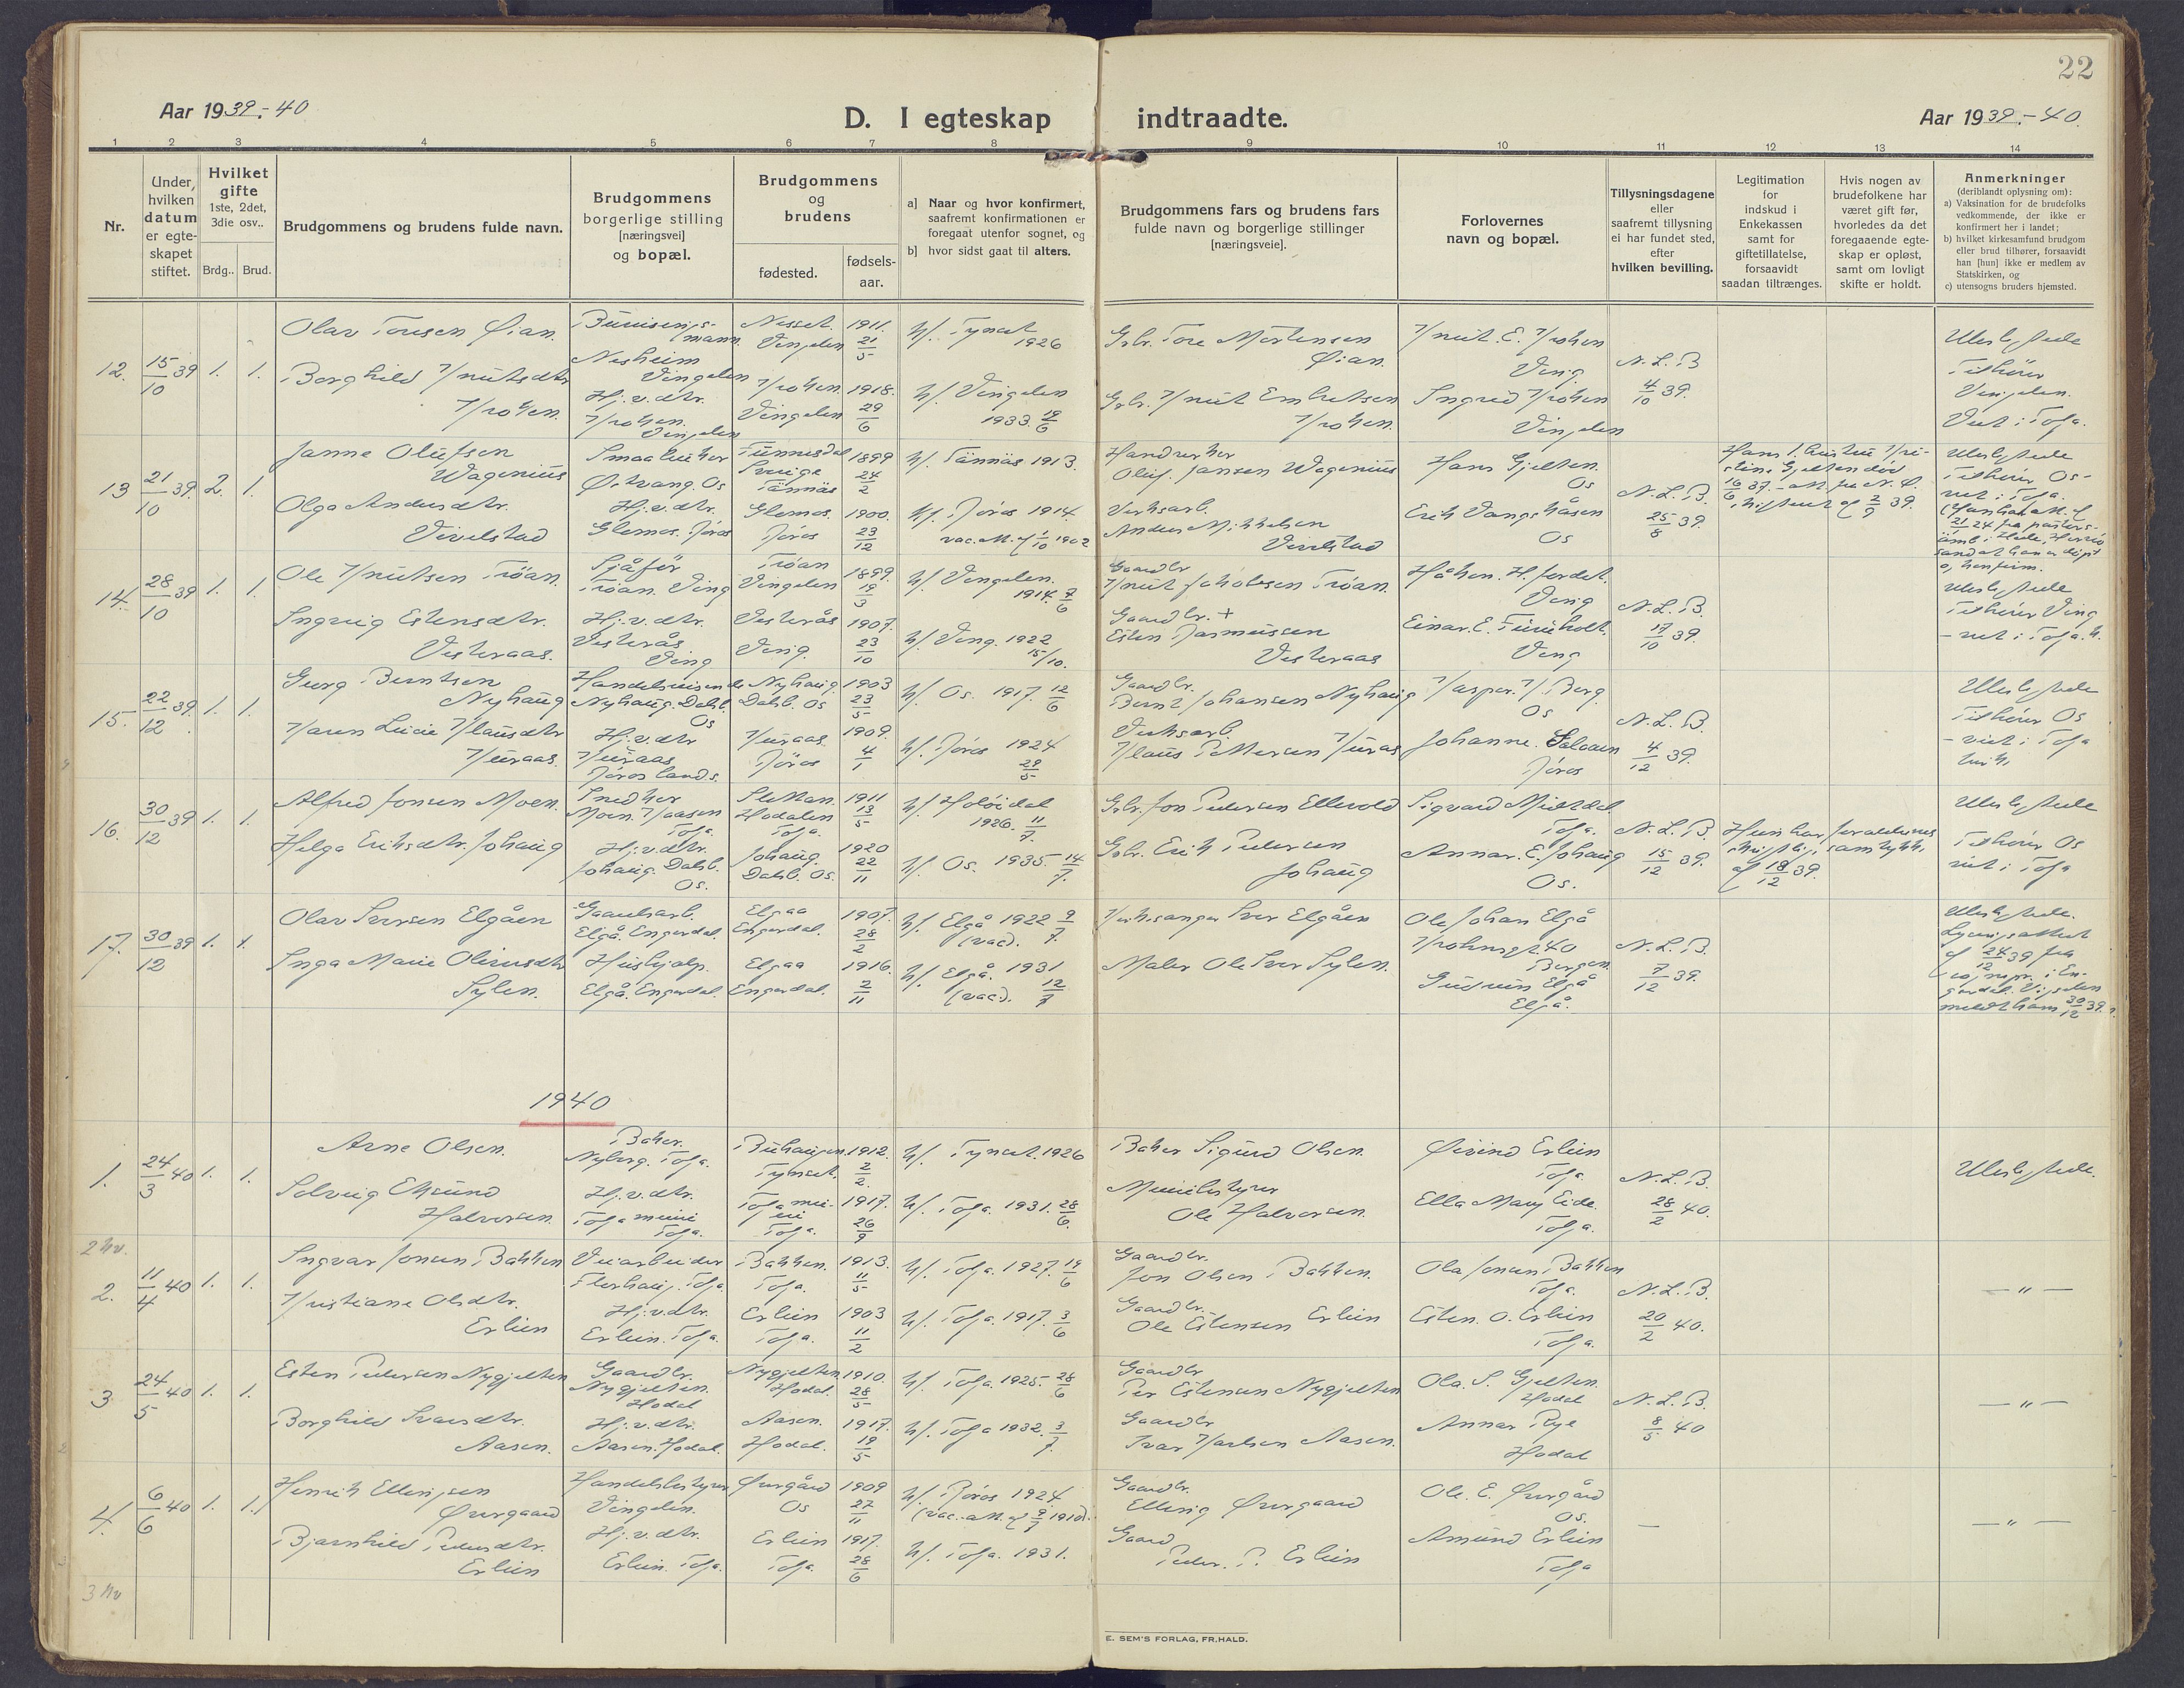 22
Aar 1939.-40
D. I egteskap indtraadte.
Aar 1939.-40.
1 2 3 4 5 6 7 8 9 10 11 12 13 14
Nr.
Under hvilken datum er egte-skapet stiftet.
Hvilket gifte 1ste, 2det, 3die osv..
Brdg.. Brud.
Brudgommens og brudens fulde navn.
Brudgommens borgerlige stilling [næringsvei] og bopæl.
Brudgommens og brudens
fødested.
fødsels-aar.
a] Naar og hvor konfirmert, saafremt konfirmationen er foregaat utenfor sognet, og
b] hvor sidst gaat til alters.
Brudgommens fars og brudens fars fulde navn og borgerlige stillinger [næringsveie].
Forlovernes navn og bopæl.
Tillysningsdagene eller saafremt tillysning ei har fundet sted, efter hvilken bevilling.
Legitimation for indskud i Enkekassen samt for giftetillatelse, forsaavidt saadan tiltrænges.
Hvis nogen av brudefolkene har været gift før, hvorledes da det foregaaende egte-skap er opløst, samt om lovligt skifte er holdt.
Anmerkninger (deriblandt oplysning om):
a) Vaksination for de brudefolks vedkommende, der ikke er konfirmert her i landet;
b) hvilket kirkesamfund brudgom eller brud tilhører, forsaavidt han [hun] ikke er medlem av Statskirken, og
c) utensogns bruders hjemsted.
12. 15/10 39 1. 1.
Olav Toresen Øian.
Vingelen 1911. 21/5
k/. Tynset 1926
Grbr. Tore Mortensen Øian.
Knut E. Krohen Ving.
N. L. B 4/10 39.
Borghild Knutsdtr Krohen.
Hj.v.dtr. Krohen. Vingelen
Krohen. Vingelen 1918. 29/6
k/. Vingelen 1933. 18/6
Grbr. Knut Embretsen Krohen.
Ingrid Krohen Vingelen
Tilhører Vingelen. Viet i Tolga.
13 21/10 39. 2. 1.
Janne Olufsen Wagenius
Østvang. Os
Sverige Tännäs 1899 24/2
k/. Tännäs 1913.
Oluf Jansen Wagenius
Hans Gjelten. Os
N. L. B. 25/8 39.
Olga Andersdtr. Vivelstad
Hj.v.dtr. Glomos. Røros
Glomos. Røros 1900. 23/12
k/. Røros 1914. vac.att. af 1/10 1902
Verksarb. Anders Mikkelsen Vivelstad
Erik Vangskåsen Os
14. 28/10 39 1. 1.
Ole Knutsen Trøan.
Sjåfør Trøan. Ving
Trøan Vingelen 1899. 19/3
k/. Vingelen. 1914. 7/6
Gaardbr Knut Jakobsen Trøan.
Håkon. H. Jordet. Ving
N. L. B. 17/10 39.
Ingeborg Estensdtr. Vesteraas.
Hj.v.dtr. Vesterås Ving
Vesterås Ving. 1907. 23/10
k/. Ving. 1922 15/10.
Gaardbr. + Esten Rasmussen Vesteraas
Einar. E. Tuneholt. Ving
Tilhører Ving - viet i Tolga. k.
15. 22/12 39. 1. 1.
Georg Berntsen Nyhaug
Handelsreisende Nyhaug. Dalsb. Os
Nyhaug. Dalsb. Os 1903 23/5
k/. Os. 1917. 12/6
Gaardbr. Bernt Johansen Nyhaug
Kasper. K. Berg. Os
N. L. B. 4/12 39.
Karen Lucie Klausdtr Kuraas.
Hj.v.dtr Kuraas Røros lands.
Kuraas. Røros 1909. 4/1
k/. Røros 1924 29/5
Verksarb. Klaus Pettersen Kuras
Johanne Galaaen Røros
Tilhører Os - viet i Tolga
16. 30/12 39 1. 1.
Alfred Jonsen Moen.
Snedker Moen. Kaasen Tolga.
Sletten. Hodalen Tolga. 1911 13/5
k/. Holøidal 1926. 11/7
Grbr. Jon Pedersen Ellevold
Sigvard Midtdal Tolga.
N. L. B. 15/12 39.
Helga Eriksdtr. Johaug
Hj.v.dtr. Johaug. Dalsb. Os.
Johaug. Dalsb. Os. 1920 22/11
k/. Os. 1935. 14/7.
Grbr. Erik Pedersen Johaug
Annar. E. Johaug Os.
Hun har foreldrenes skriftlige samtykke af 18/12 39.
Tilhører Os viet i Tolga
17. 30/12 39 1. 1.
Olav Iversen Elgåen
Gaardsarb. Elgå. Engerdal.
Elgaa Engerdal. 1907. 28/2
k/. Elgå 1922 9/7. (vac).
Kirkesanger Iver Elgåen
Ole Johan Elgå 40 Bergen
N. L. B. 7/12 39.
Inga Marie Olivsdtr Sylen.
Hushjelp. Elgå. Engerdal.
Elgaa Engerdal. 1916. 2/11
k/. Elgå. 1931 (vac). 12/7
Maler Ole Iver Sylen.
Gudrun Elgå Elgå.
1940
1. 24/3 40 1. 1.
Arne Olsen.
Baker. Nyberg. Tolga.
Tynset. 1912. 2/2.
k/. Tynset. 1926
Baker Sigurd Olsen.
Øivind Erlien Tolga.
N. L. B. 28/2 40.
Solveig Eksund Halvorsen.
Hj.v.dtr. Tolga meieri Tolga.
Tolga mei-eri Tolga. 1917. 26/9
k/. Tolga. 1931. 28/6.
Meieribestyrer Ole Halvorsen.
Ella Mary Eide. Tolga.
2 kv.
2. 11/4 40 1. 1.
Ingvar Jonsen Bakken
Veiarbeider Tolga
Bakken. Tolga. 1913. 11/5
k/. Tolga. 1927. 19/6
Gaardbr. Jon Olsen Bakken.
Ola Jonsen Bakken Tolga.
N. L. B. 20/2 40.
Kristiane Olsdtr. Erlien
Hj.v.dtr. Erlien. Tolga.
Erlien Tolga. 1903 11/2
k/. Tolga. 1917. 3/6
Gaardbr. Ole Estensen Erlien
Esten. O. Erlien Tolga.
— " —
3. 24/5 40 1. 1.
Esten Pedersen Nygjelten
Gaardbr. Nygjelten. Hodal
Nygjelten. Hodal. 1910. 28/5
k/. Tolga. 1925. 28/6
Gaardbr Per Estensen Nygjelten
Ola. S. Gjelten. Hodal
N. L. B. 8/5 40
Borghild Ivarsdtr. Aasen.
Hj.v.dtr. Aasen. Hodal.
Aasen. Hodal. 1917. 19/5
k/. Tolga 1932. 3/7.
Gaardbr Ivar Karlsen Aasen.
Annar Rye Hodal
— " —
4. 6/6 40 1. 1.
Henrik Ellingsen Øvergaard
Handelsbestyrer Vingelen.
Øvergård Os 1909 27/11
k/. Røros 1924 (vac.-att. af 9/7 1910).
Gaardbr. Elling Øvergaard
Ole. E. Øvergård Os.
—
Bjarnhild Pedersdtr. Erlien
Hj.v.dtr. Erlien. Tolga.
Erlien Tolga. 1917. 28/6
k/. Tolga. 1931.
Gaard Peder. P. Erlien
Amund Erlien Tolga
— " —
3 kv
E. SEM'S FORLAG, FR.HALD.